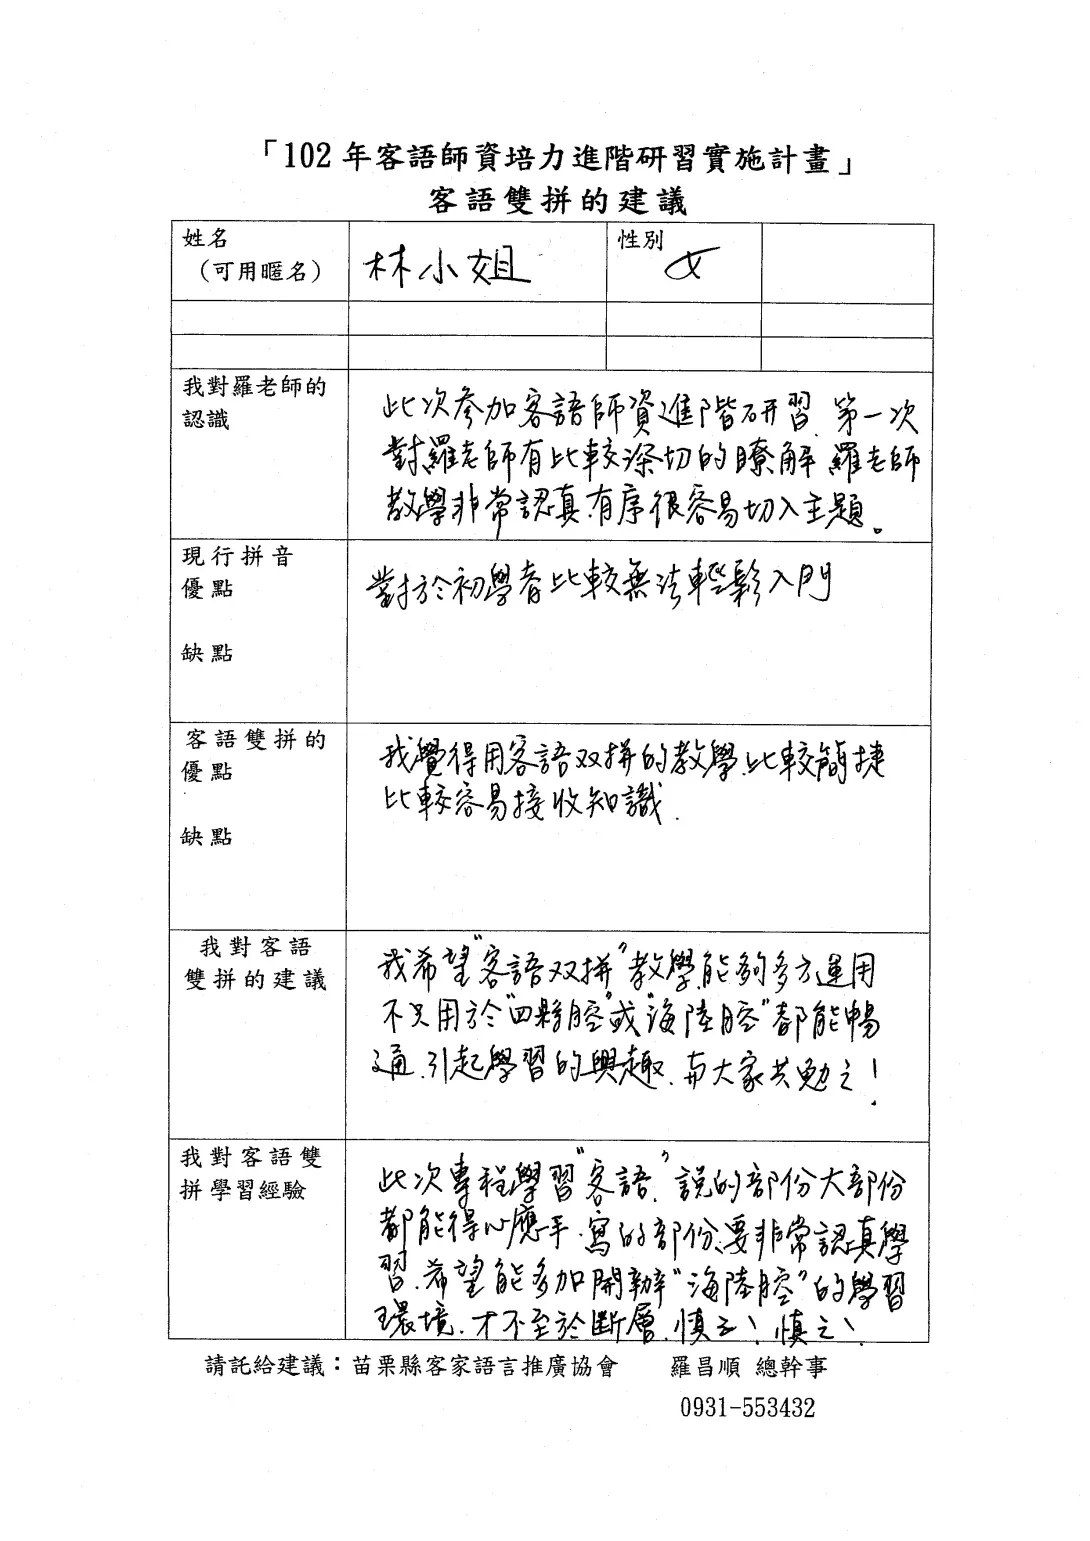 「102 年客語師資培力進階研習實施計畫」
客語雙拼的建議
姓名
（可用暱名）
林小姐
性別
女
我對羅老師的
認識
此次參加客語師資進階研習.第一次
對羅老師有比較深切的瞭解.羅老師
教學非常認真.有序很容易切入主題。
現行拼音
優點
缺點
對於初學者比較無法輕鬆入門
客語雙拼的
優點
缺點
我覺得用客語双拼的教學.比較簡捷
比較容易接收知識.
我對客語
雙拼的建議
我希望"客語双拼"教學.能夠多方運用
不只用於"四縣腔"或"海陸腔"都能暢
通.引起學習的興趣.与大家共勉之!
我對客語雙
拼學習經驗
此次專程學習"客語".說的部份大部份
都能得心應手.寫的部份、要非常認真學
習.希望能多加開辦"海陸腔"的學習
環境.才不至於斷層.慎之!慎之!
請託給建議：苗栗縣客家語言推廣協會 羅昌順 總幹事
0931-553432